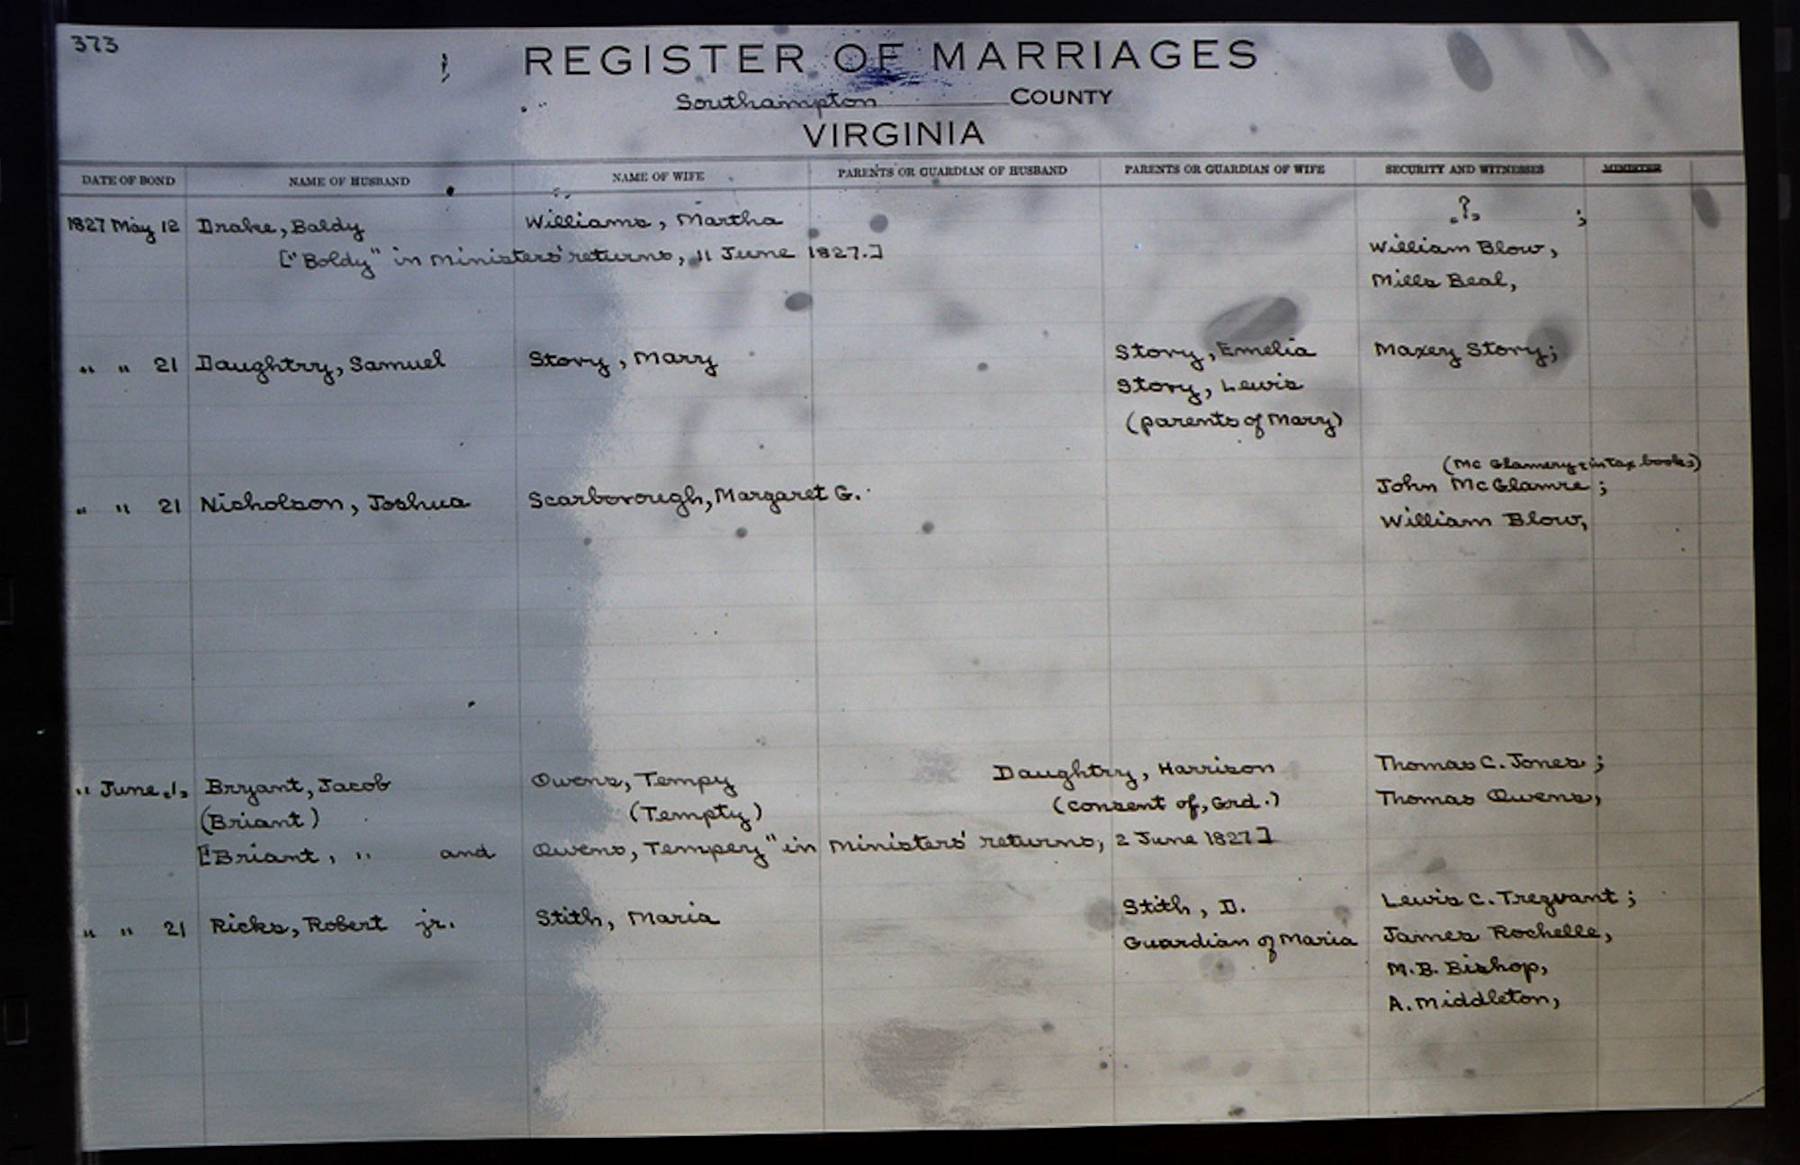 373
REGISTER OF MARRIAGES
Southampton COUNTY
VIRGINIA
DATE OF BOND NAME OF HUSBAND NAME OF WIFE PARENTS OR GUARDIAN OF HUSBAND PARENTS OR GUARDIAN OF WIFE SECURITY AND WITNESSES MINISTER
1827 May 12 Drake, Baldy Williams, Martha ? ;
["Boldy" in ministers' returns, 11 June 1827.] William Blow,
Mills Beal,
" " 21 Daughtry, Samuel Story, Mary Story, Emelia Maxey Story;
Story, Lewis
(parents of Mary)
(McGlamery in tax books)
" " 21 Nicholson, Joshua Scarborough, Margaret G. John McGlamre;
William Blow,
" June 1, Bryant, Jacob Owens, Tempy Daughtry, Harrison Thomas C. Jones;
(Briant) (Tempty) (consent of, Grd.) Thomas Owens,
[Briant, " and Owens, Tempey" in ministers' returns, 2 June 1827]
" " 21 Ricks, Robert jr. Stith, Maria Stith, D. Lewis C. Trezvant;
Guardian of Maria James Rochelle,
M.B. Bishop,
A. Middleton,